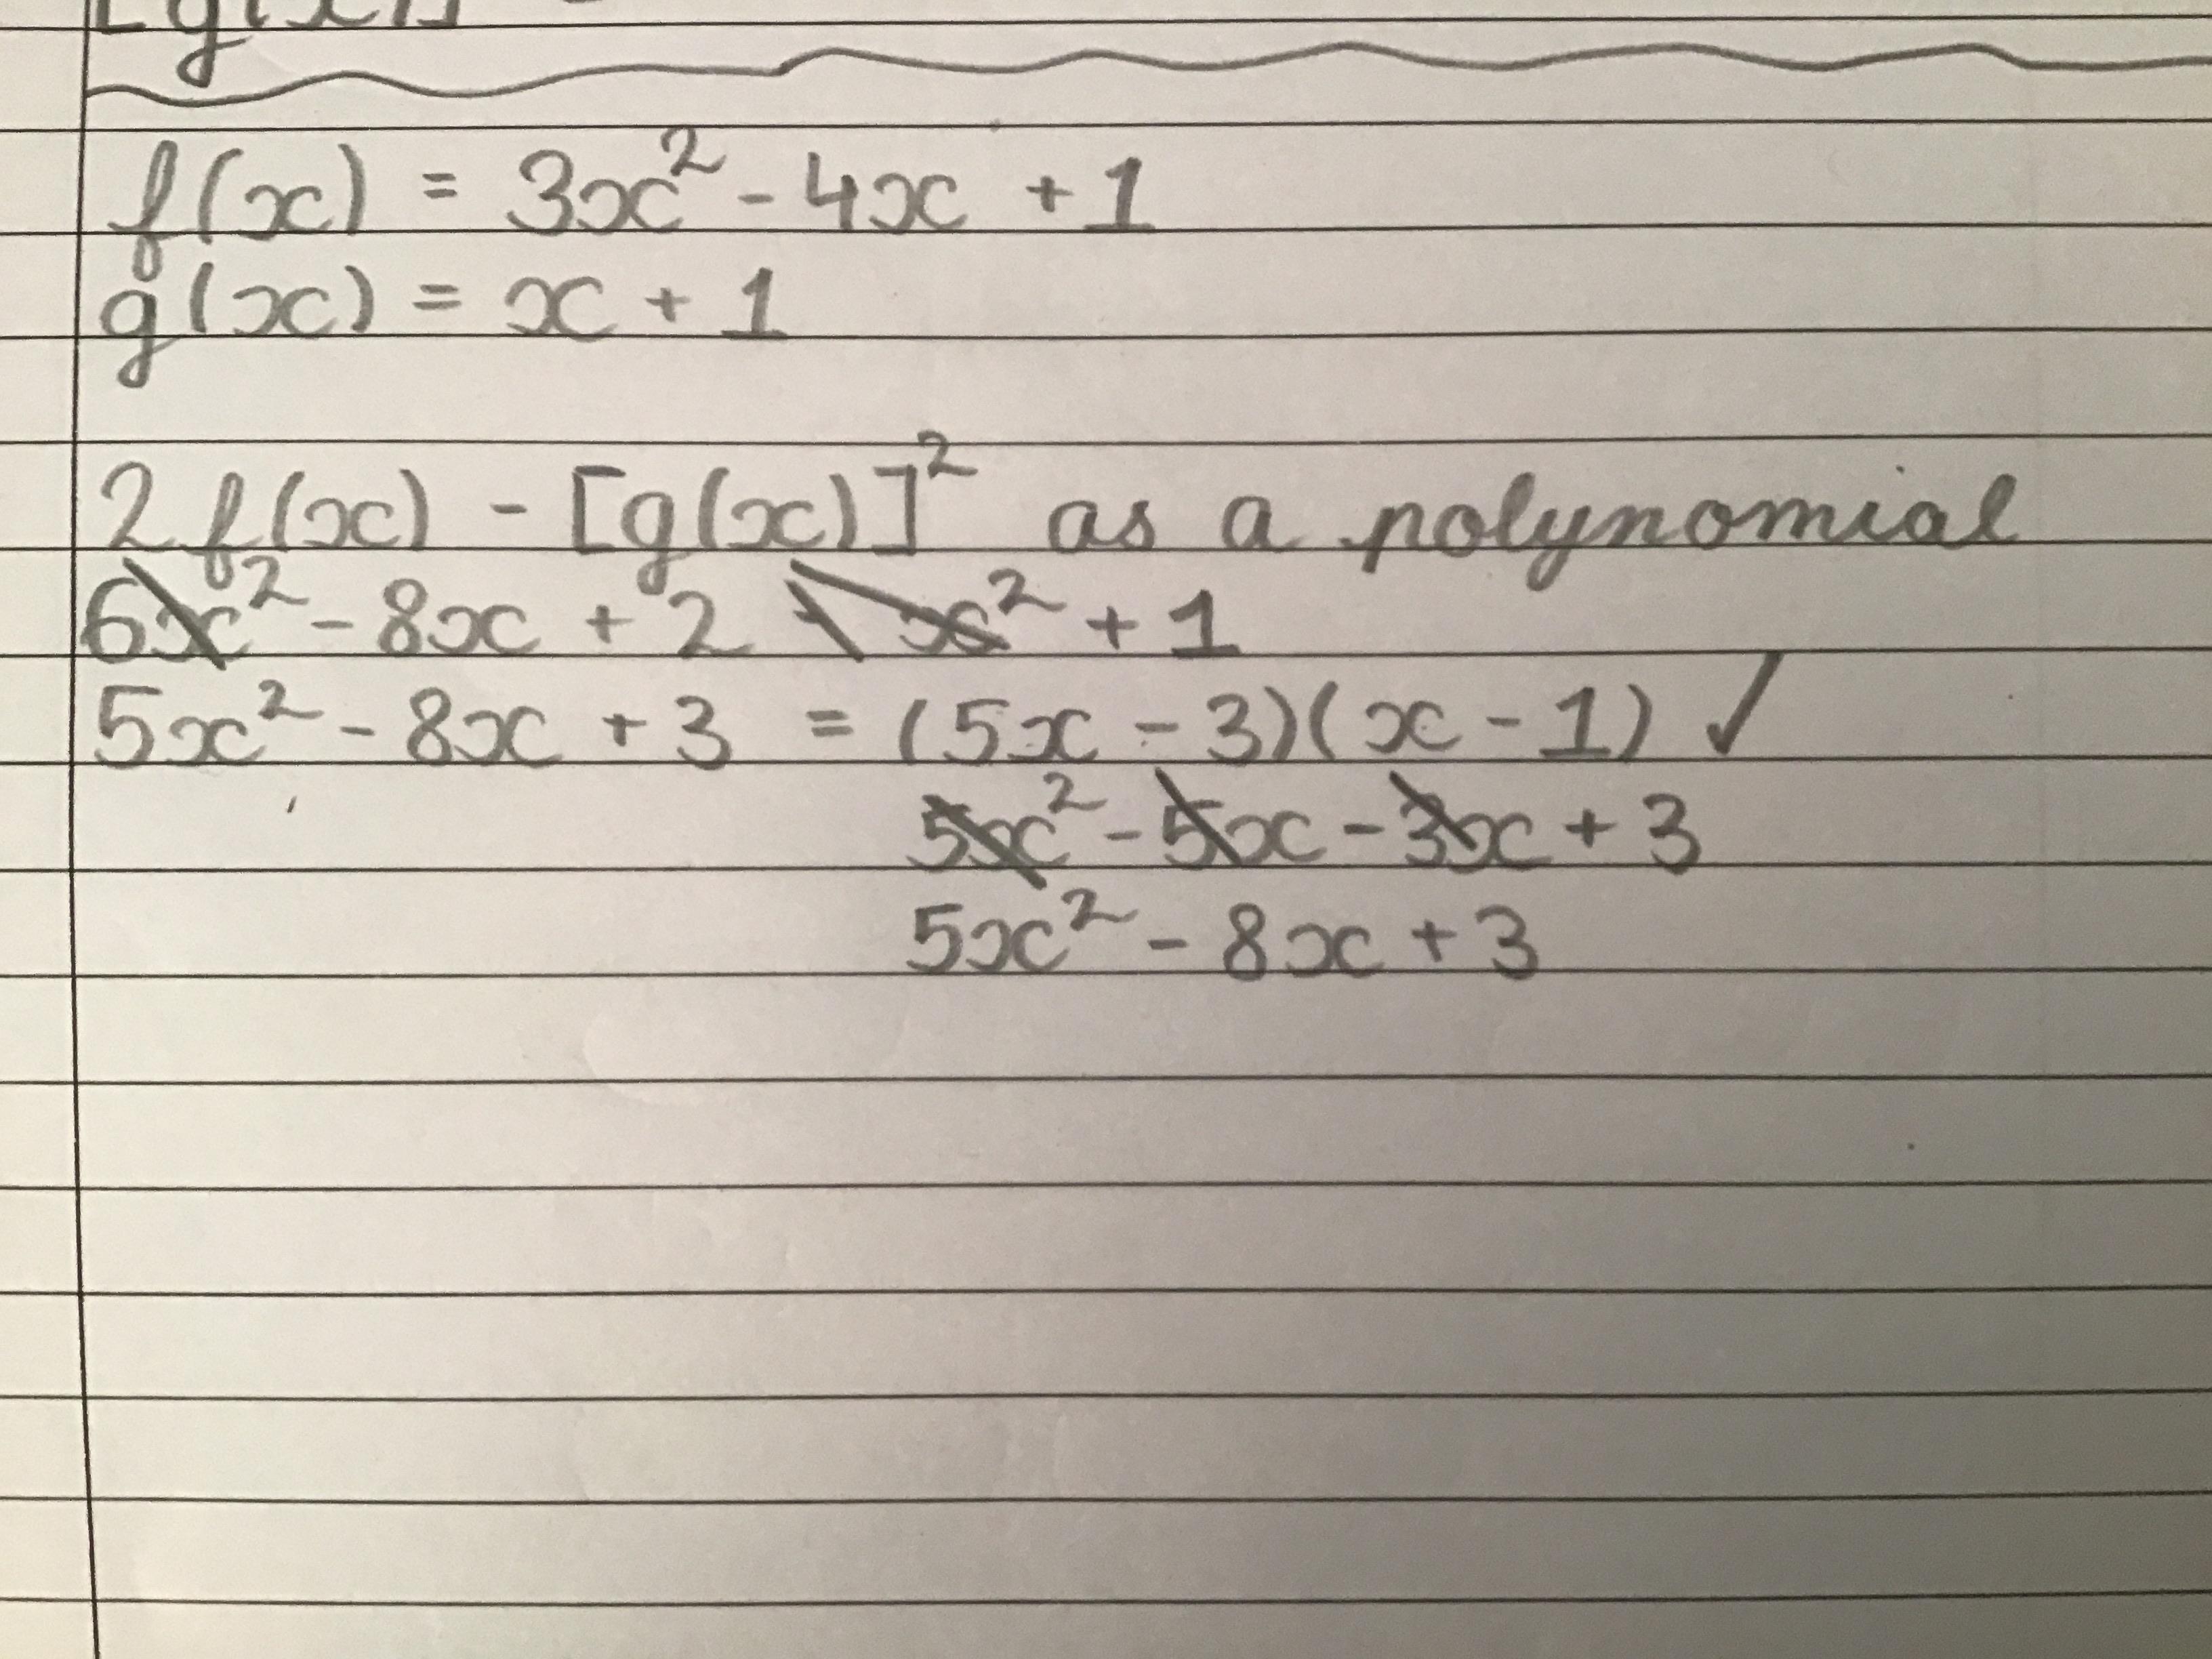 [g(x)]
f(x) = 3x² - 4x + 1
g(x) = x + 1
2f(x) - [g(x)]² as a polynomial
6x² - 8x + 2 - x² + 1
5x² - 8x + 3 = (5x - 3)(x - 1) ✓
5x² - 5x - 3x + 3
5x² - 8x + 3